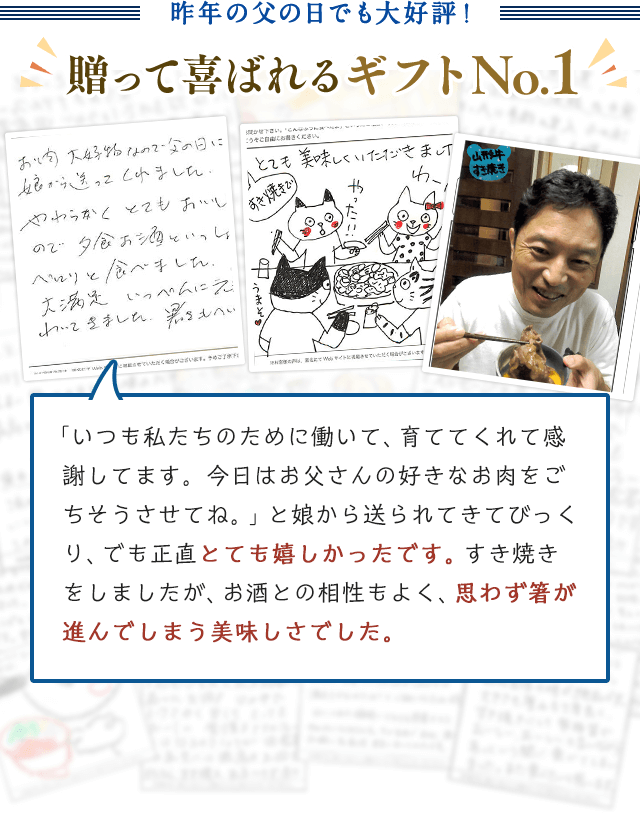 昨年の父の日でも大好評！
贈って喜ばれるギフトNo.1
お肉 大好物なので父の日に
娘から送ってくれました。
やわらかく とても おいし
ので 夕食お酒といっしょ
ペロリと 食べました。
大満足 いっぺんに元
わいてきました。
とても美味しくいただきまし
すき焼きで
やった!!
わ〜
うまそ
山形牛
すき焼き
「いつも私たちのために働いて、育ててくれて感
謝してます。今日はお父さんの好きなお肉をご
ちそうさせてね。」と娘から送られてきてびっく
り、でも正直とても嬉しかったです。すき焼き
をしましたが、お酒との相性もよく、思わず箸が
進んでしまう美味しさでした。